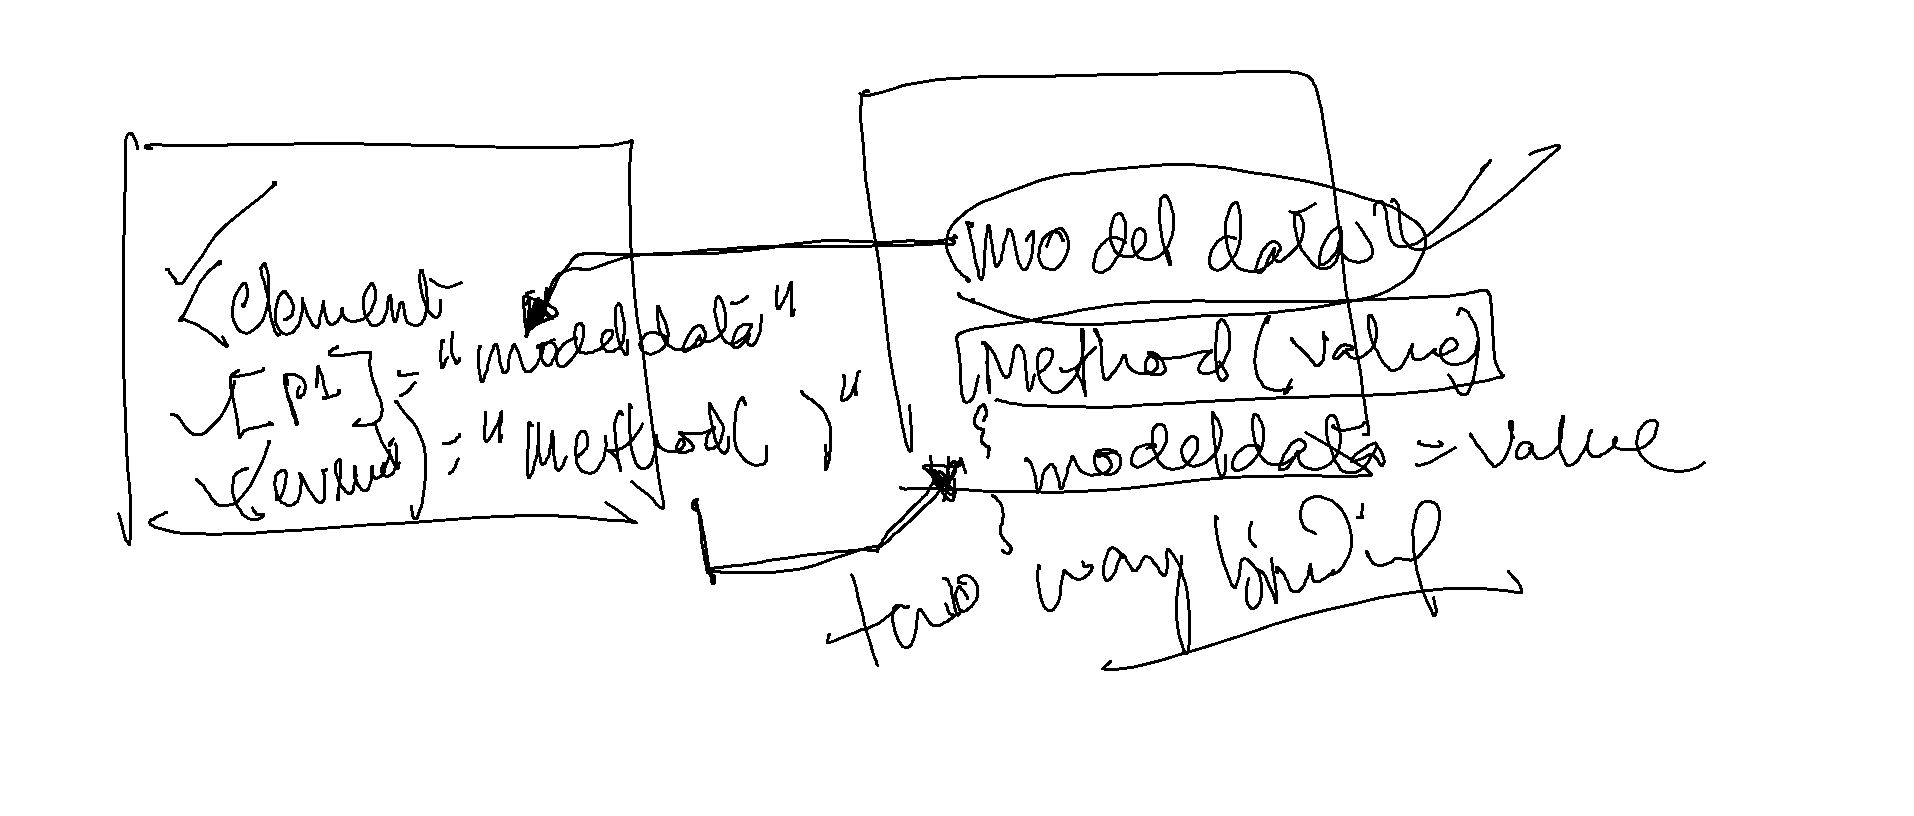 <element
[p1]="modeldata"
(event)="Method( )"
Model data"
Method(value)
{
modeldata=value
}
two way binding